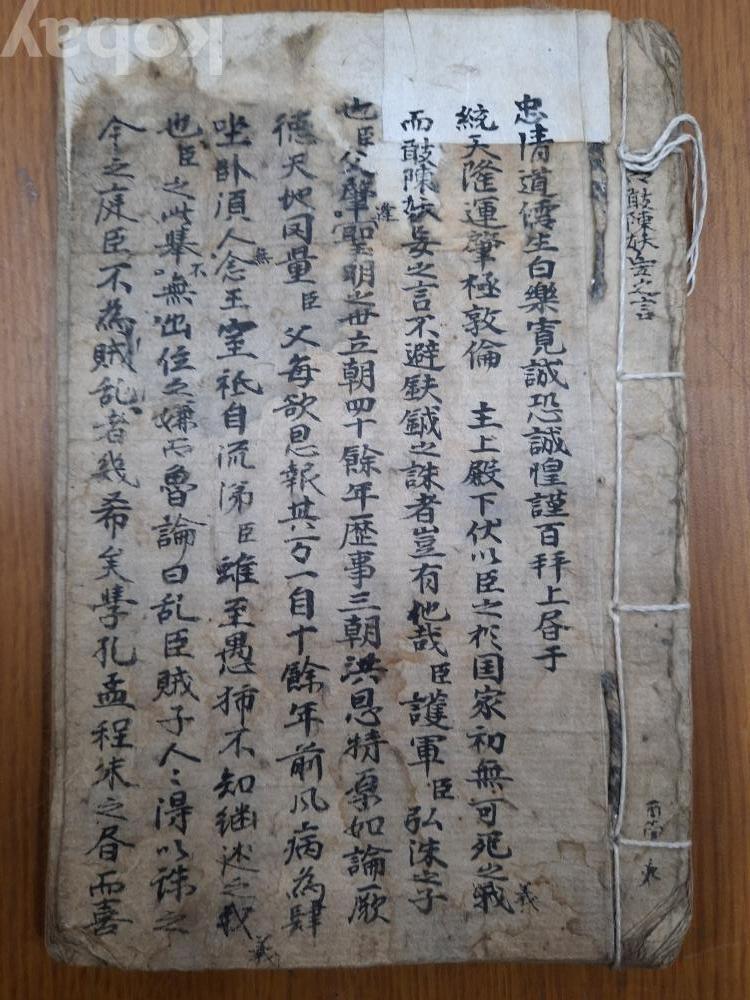 敢陳妖妄之言
忠清道儒生白樂寬誠恐誠惶謹百拜上書于
統天隆運肇極敦倫 主上殿下伏以臣之於国家初無可死之
義
而敢陳妖妄之言不避鈇鉞之誅者豈有他哉臣護軍臣弘洙之子
也臣父肇聖明之世立朝四十餘年歷事三朝洪恩特 如論厥
逢
德天地同量臣父每欲思報其万一自十餘年前风病為肆
坐卧湏人念王室祇自流涕臣雖至愚 不知継述之
無
義
也臣之此舉嘸出位之嫌而魯論曰乱臣賊子人〻淂以誅之
不
今之庭臣不為賊乱者幾希矣學孔孟程朱之書而喜
kobay